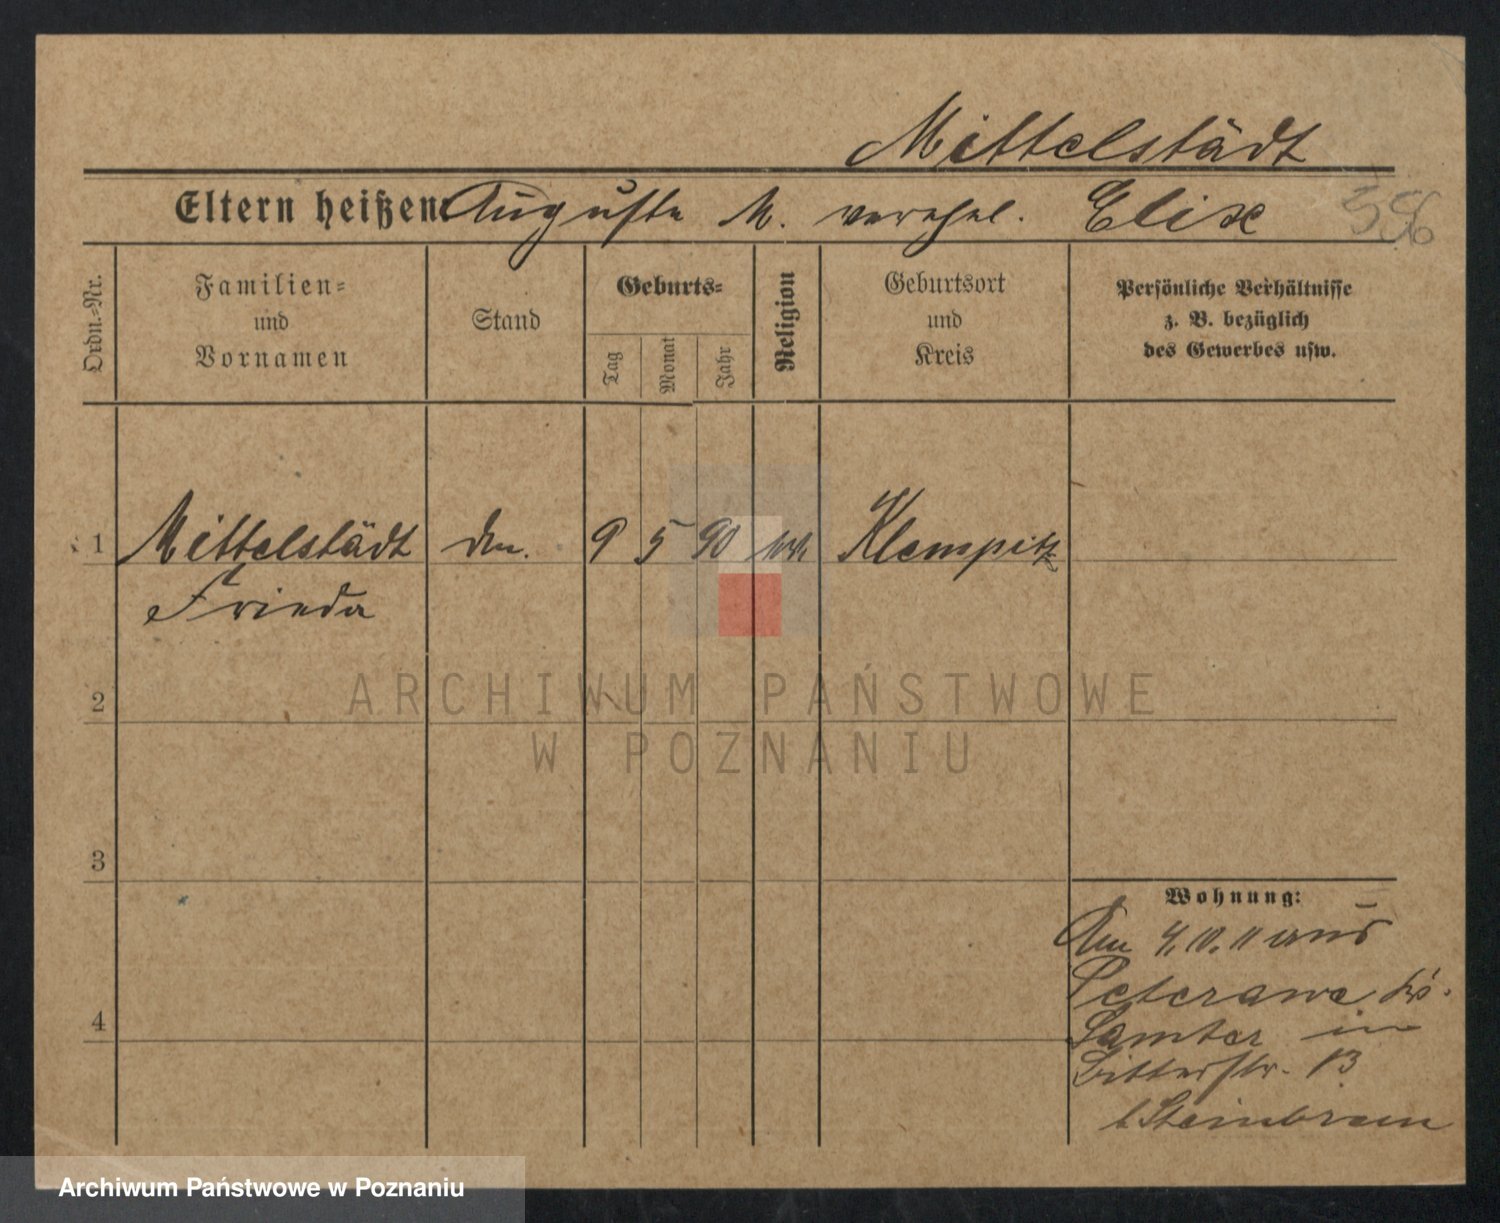 Mittelstädt
Eltern heißen Auguste M. verehel. Elix
356
Ordn.=Nr.
Familien=
und
Vornamen
Stand
Geburts=
Tag
Monat
Jahr
Religion
Geburtsort
und
Kreis
Persönliche Verhältnisse
z. B. bezüglich
des Gewerbes usw.
1 Mittelstädt 9 5 90 Klempitz
Frieda
ARCHIWUM PAŃSTWOWE
W POZNANIU
2
3
Wohnung:
Am 4. 10. 11 aus
Peterawe Krs.
4
Samter in
Ritterstr. 13
b. Steinbrem
Archiwum Państwowe w Poznaniu